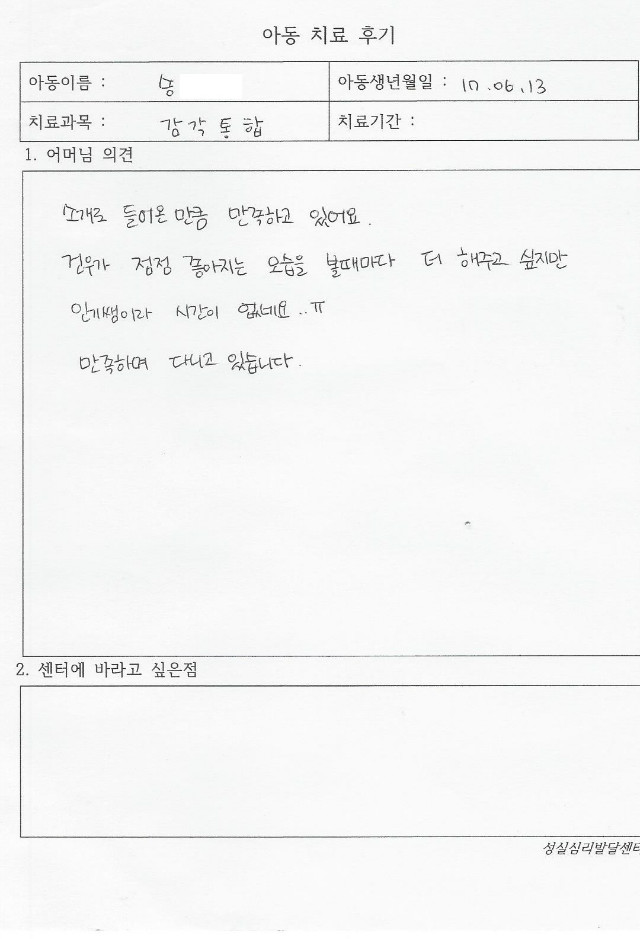 아동 치료 후기
아동이름 : 송
아동생년월일 : 17.06.13
치료과목 : 감각통합
치료기간 :
1. 어머님 의견
소개로 들어온 만큼 만족하고 있어요.
건우가 점점 좋아지는 모습을 볼때마다 더 해주고 싶지만
인기쌤이라 시간이 없네요..ㅠ
만족하며 다니고 있습니다.
2. 센터에 바라고 싶은점
성실심리발달센터